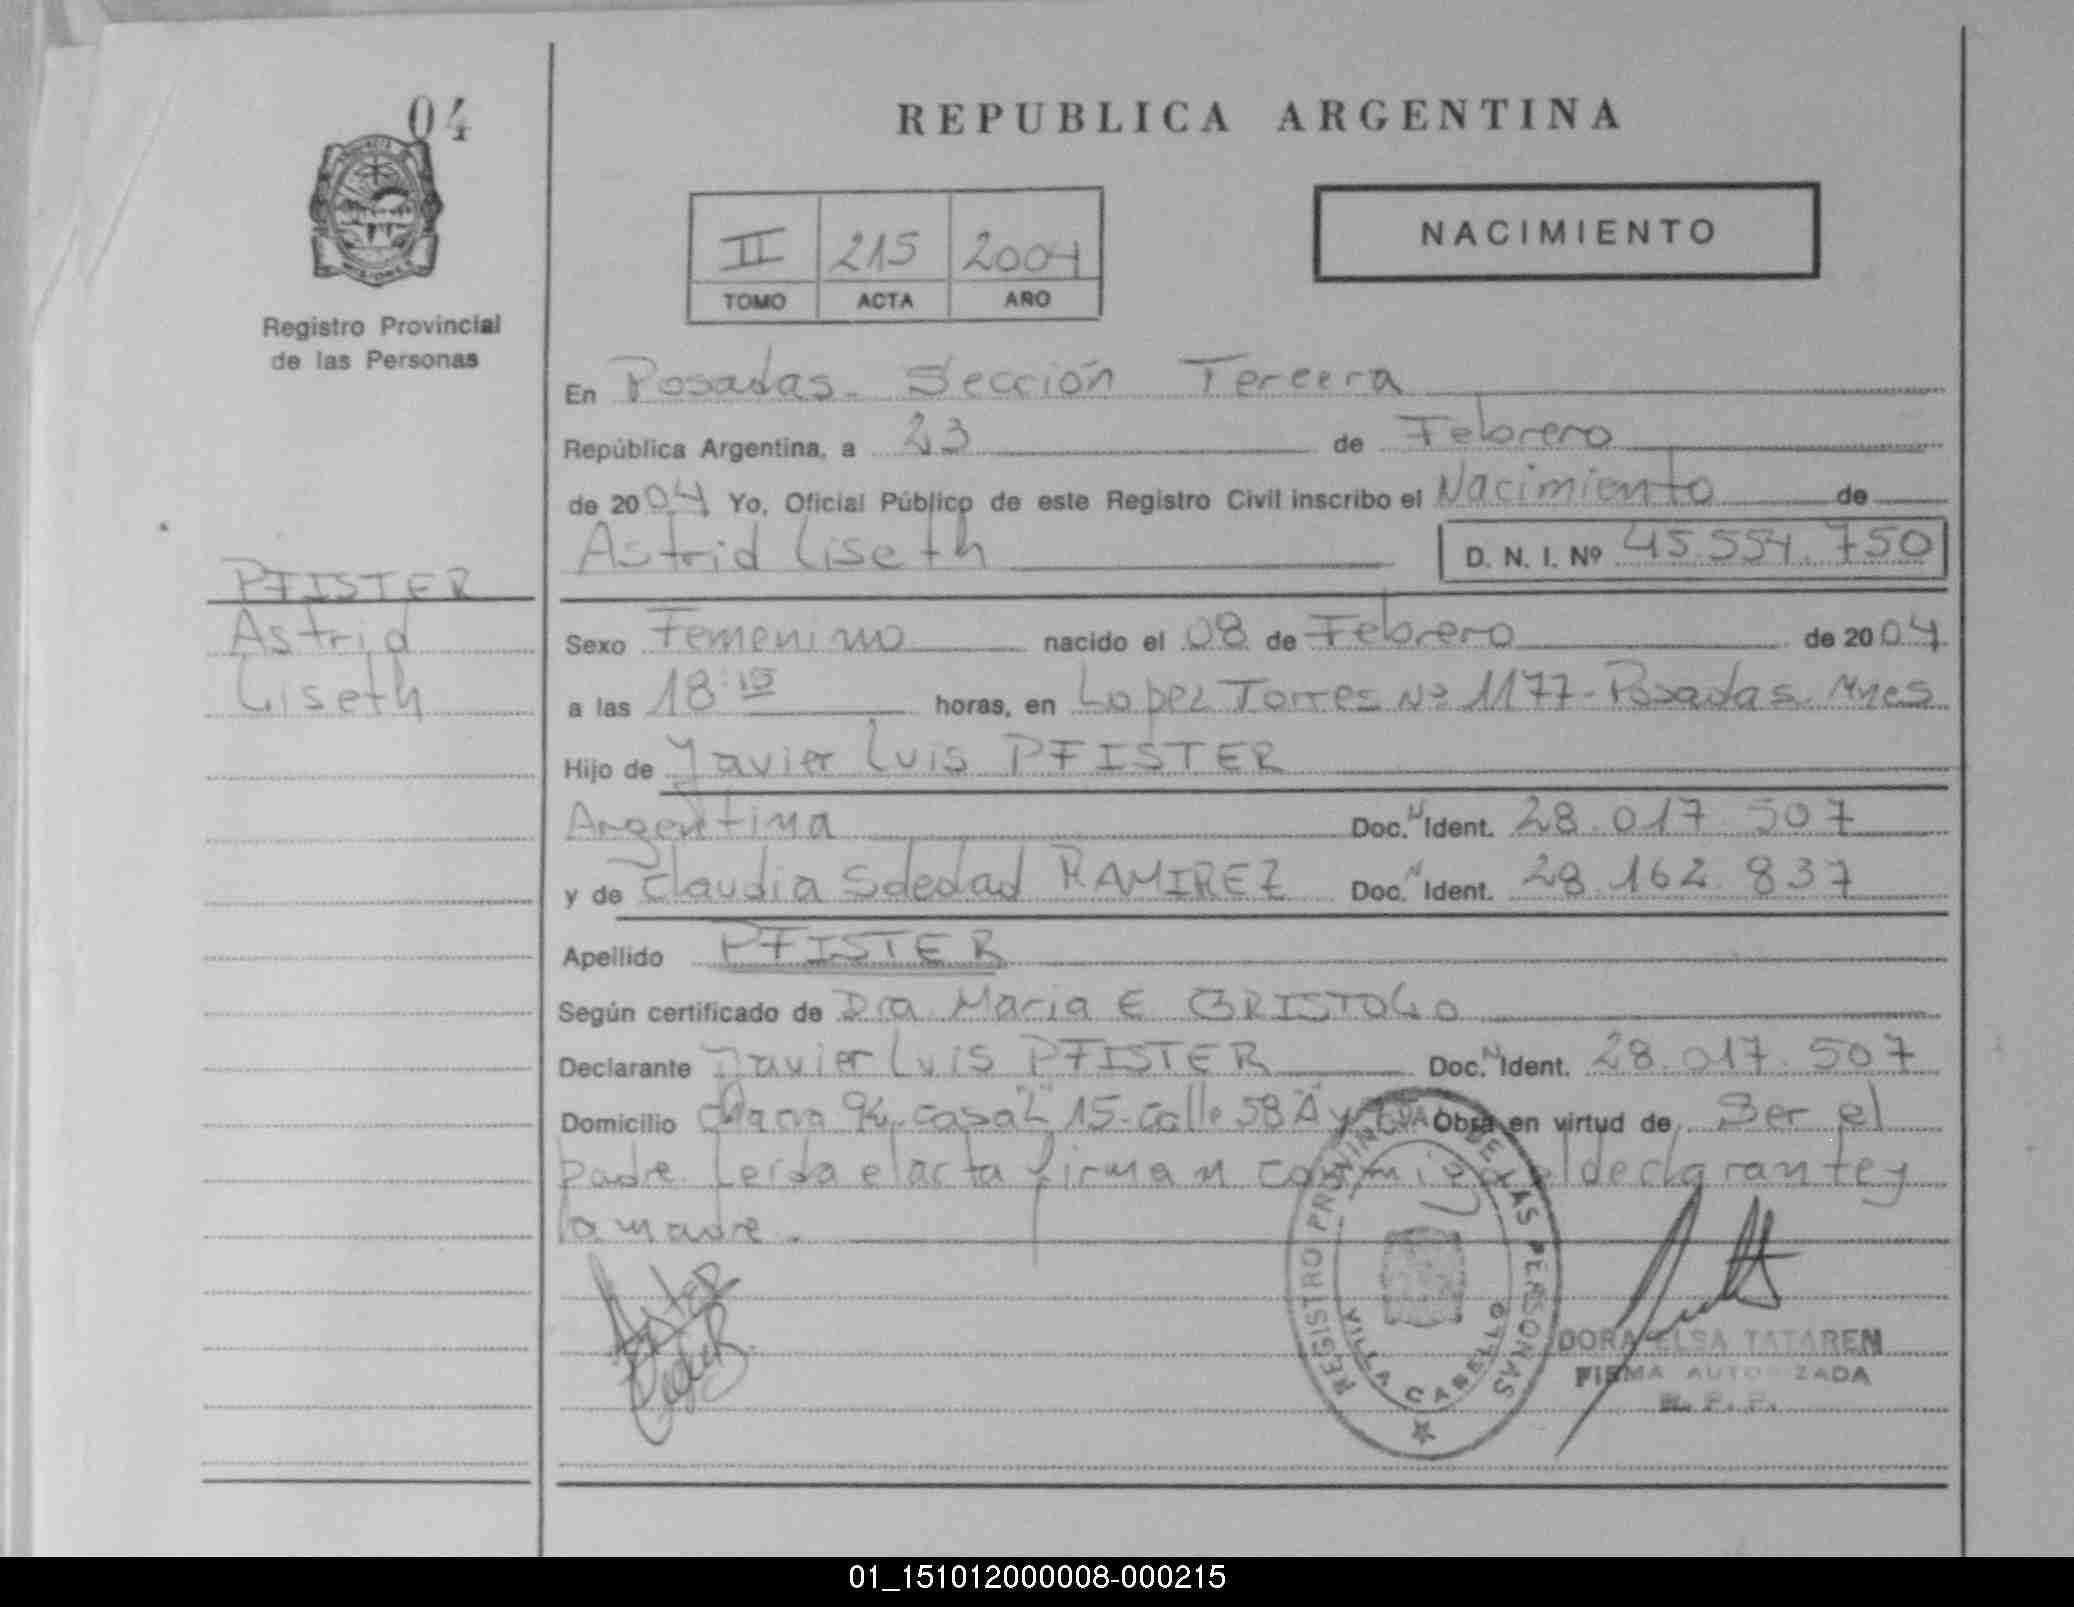 04
REPUBLICA ARGENTINA
NACIMIENTO
II 215 2004
TOMO ACTA AÑO
Registro Provincial
de las Personas
En Posadas. Sección Tercera
República Argentina, a 23 de Febrero
de 2004 Yo, Oficial Público de este Registro Civil inscribo el Nacimiento de
Astrid Liseth D. N. I. Nº 45.554.750
PFISTER
Astrid
Liseth
Sexo Femenino nacido el 08 de Febrero de 2004
a las 18:10 horas, en Lopez Torres Nº 1177-Posadas. Mnes
Hijo de Javier Luis PFISTER
Argentina Doc. N Ident. 28.017.507
y de Claudia Soledad RAMIREZ Doc. N Ident. 28.162.837
Apellido PFISTER
Según certificado de Dra. Maria E BRISTOLO
Declarante Javier Luis PFISTER Doc. N Ident. 28.017.507
Domicilio Chacra 94-casa "L" 15-Calle 58 "A" y Obra en virtud de Ser el
padre. Leída el acta firman conmigo el declarante y
la madre.
REGISTRO PROVINCIAL DE LAS PERSONAS
VILLA CABELLO
DORA ELSA TATAREN
FIRMA AUTORIZADA
R. P. P.
01_151012000008-000215